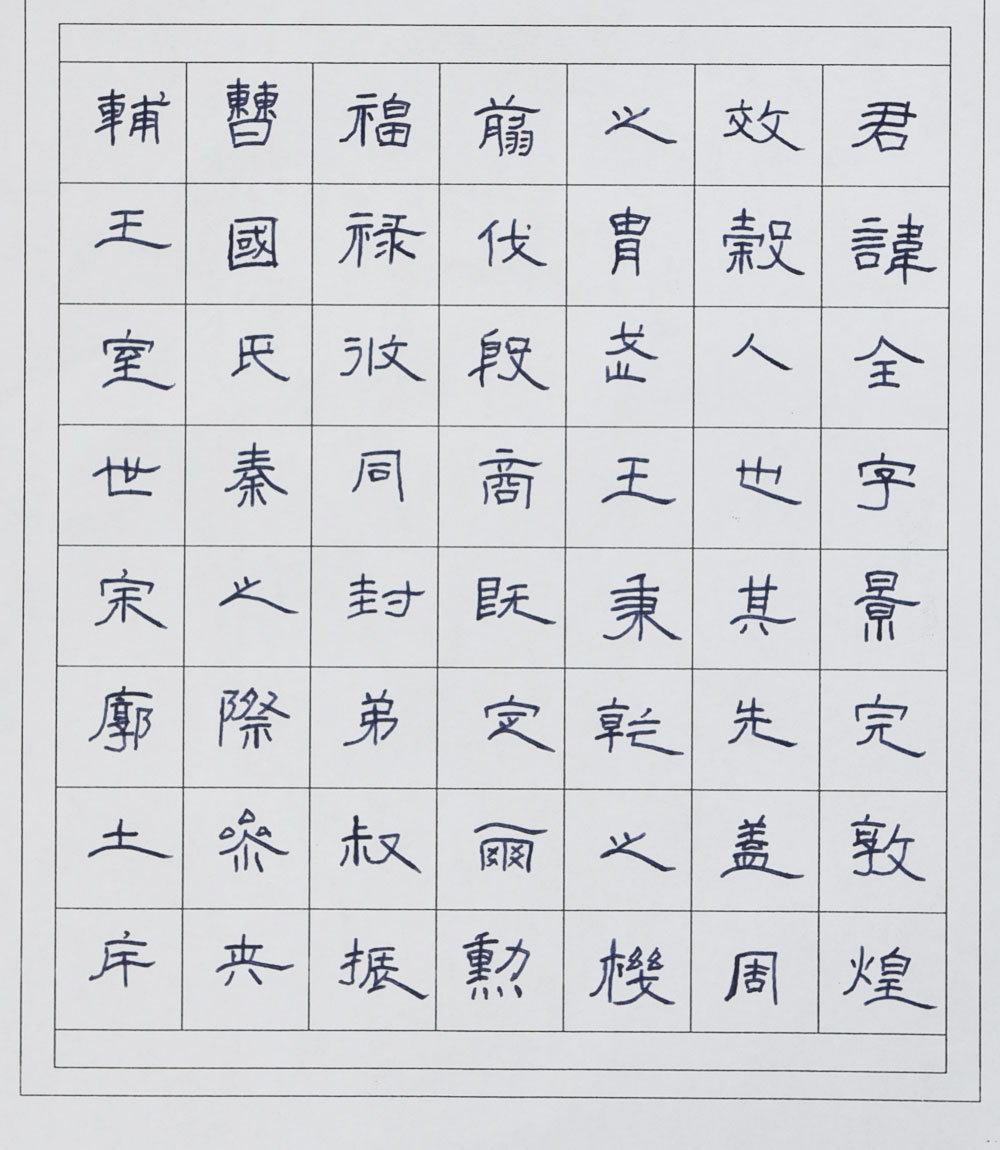 君諱全字景完敦煌
效穀人也其先盖周
之胄武王秉乾之機
翦伐殷商既定爾勲
福禄攸同封弟叔振
曹國氏秦之際參夾
輔王室世宗廓土斥